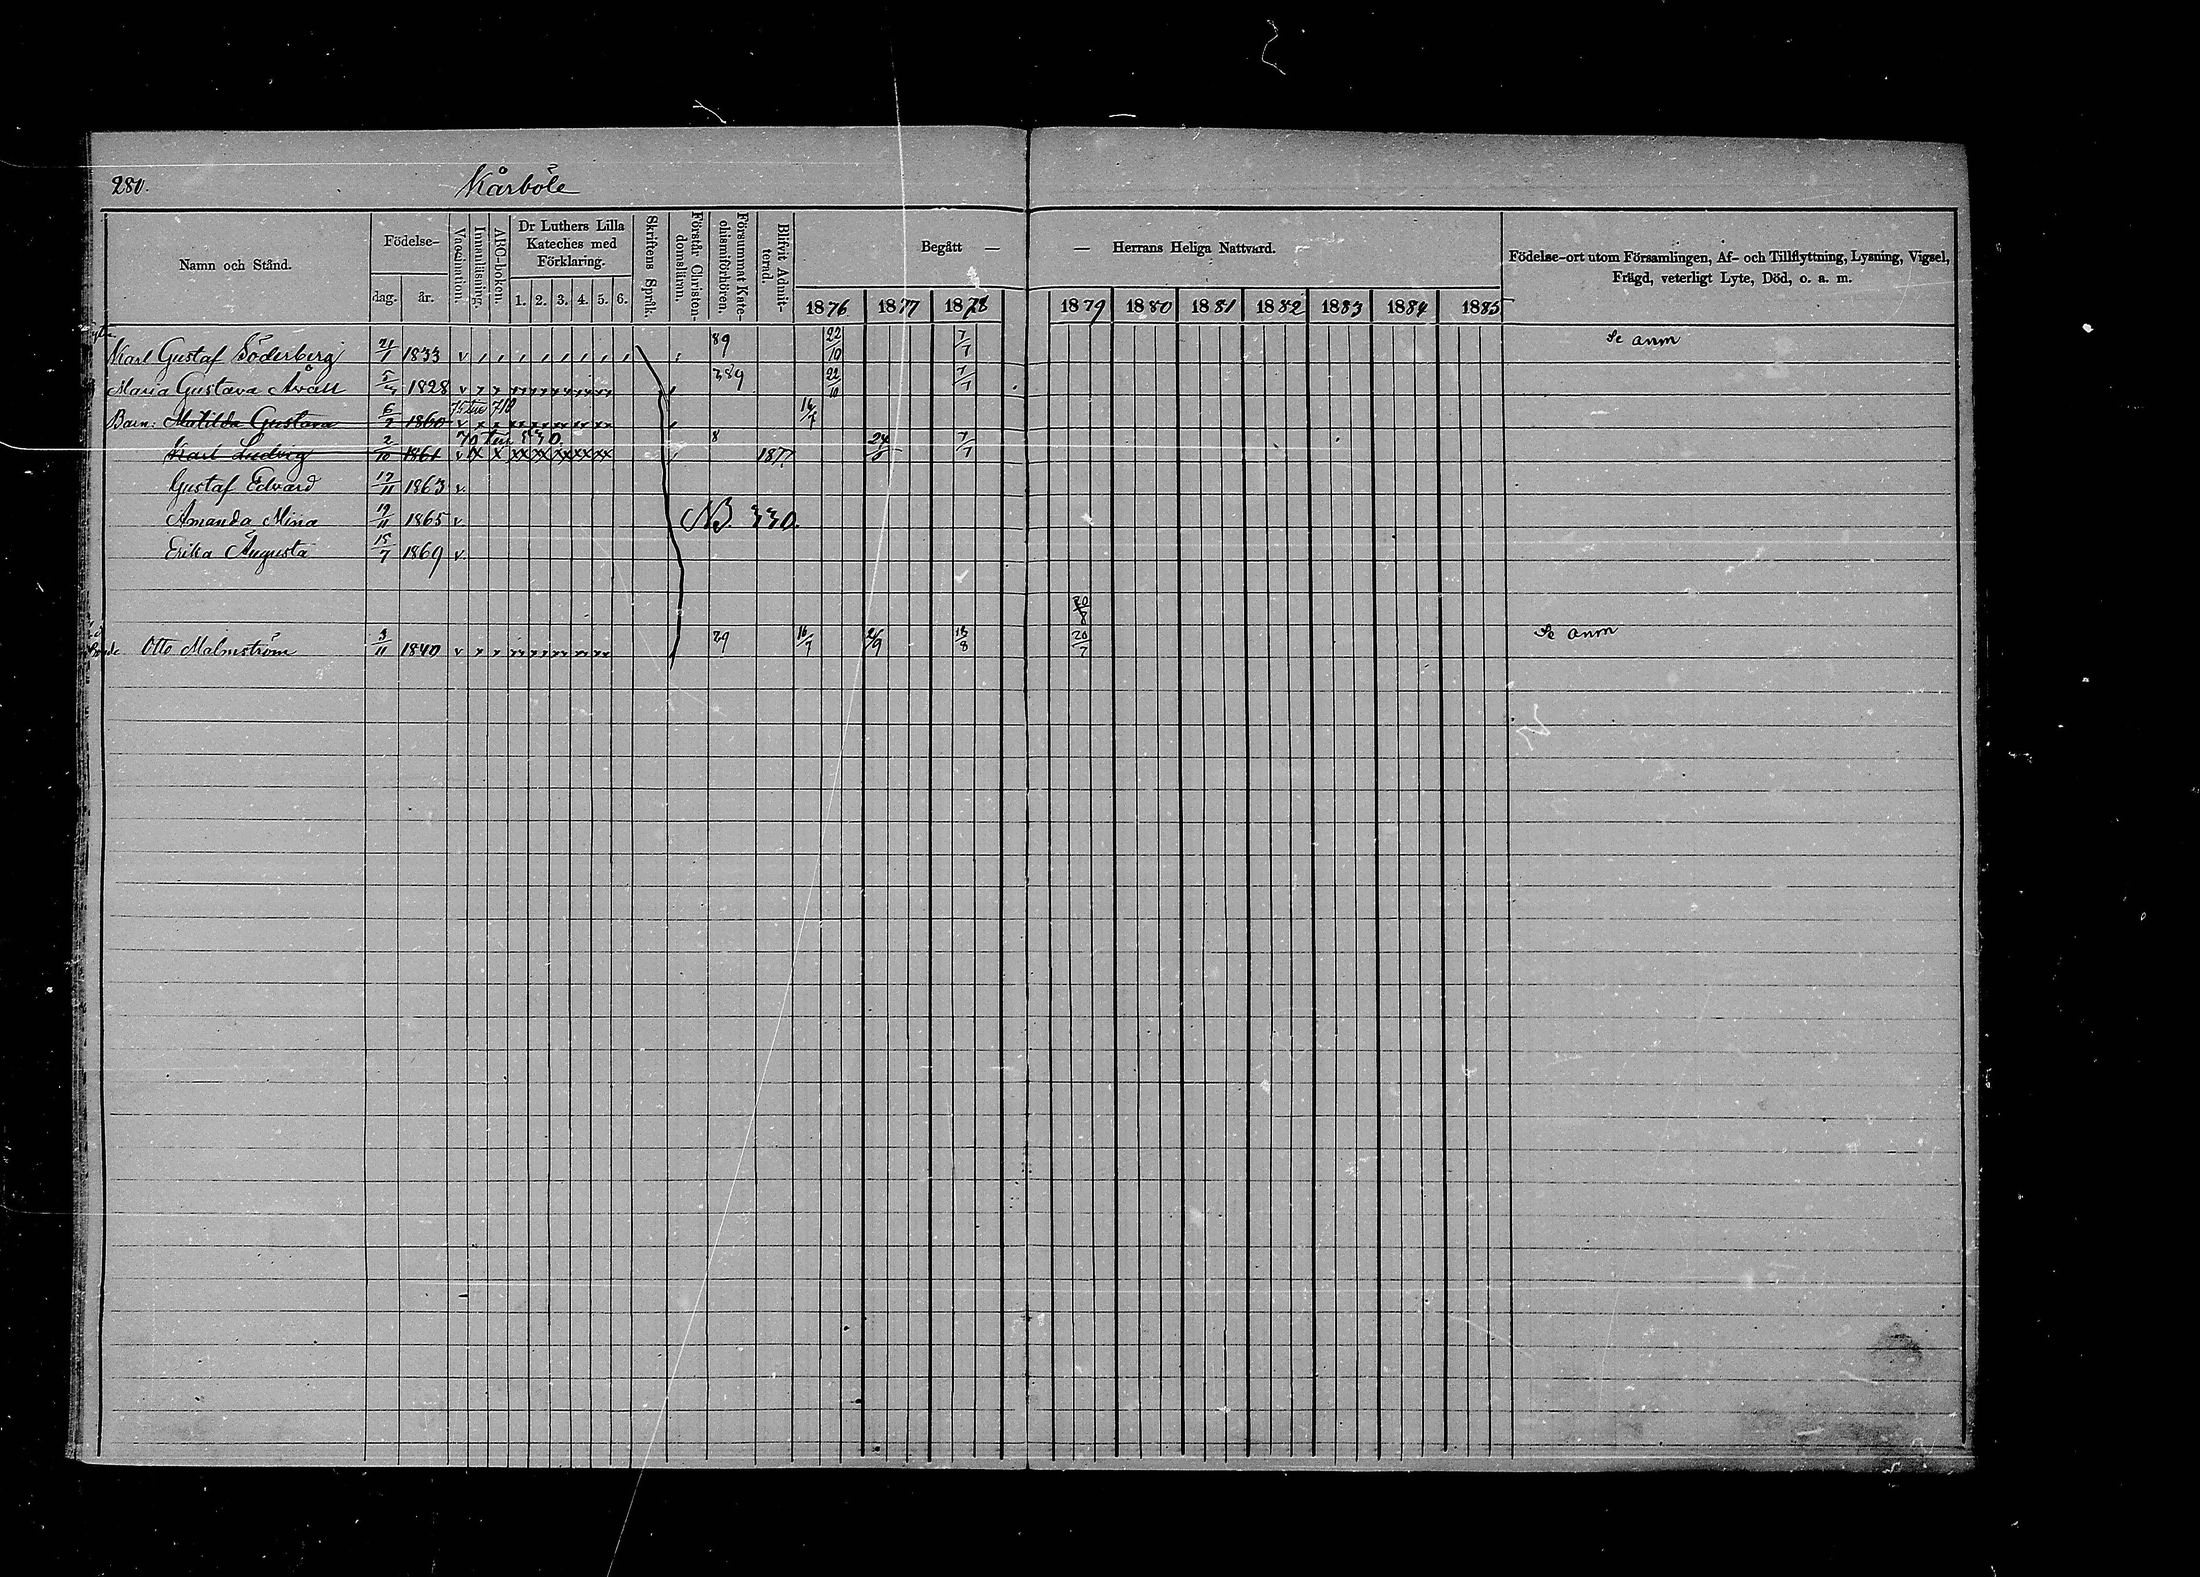 280.
Kårböle
Namn och Stånd.
Födelse-
dag.
år.
Vaccination.
Innanläsning.
ABC-boken.
Dr Luthers Lilla
Kateches med
Förklaring.
1. 2. 3. 4. 5. 6.
Skriftens Språk.
Förstår Christen-
domsläran.
Försummat Kate-
chismiförhören.
Blifvit Admit-
terad.
Begått —
— Herrans Heliga Nattvard.
1876 1877 1878 1879 1880 1881 1882 1883 1884 1885
Födelse-ort utom Församlingen, Af- och Tillflyttning, Lysning, Vigsel,
Frägd, veterligt Lyte, Död, o. a. m.
Karl Gustaf Söderberg 21/1 1833 v 89 22/10 7/7 Se anm
Maria Gustava 1828 v 389 22/10 7/7
Barn: Matilda Gustava 1860 v
Karl Ludvig 2/10 1861 v x x xx xx xx xx xx 8 1877 7/7
Gustaf Edvard 17/11 1863 v.
Amanda Mina 19/11 1865 v NB. 330.
Erika Augusta 15/7 1869 v.
20/8
Otto Malmström 3/11 1840 v 16/7 18/8 20/7 Se anm